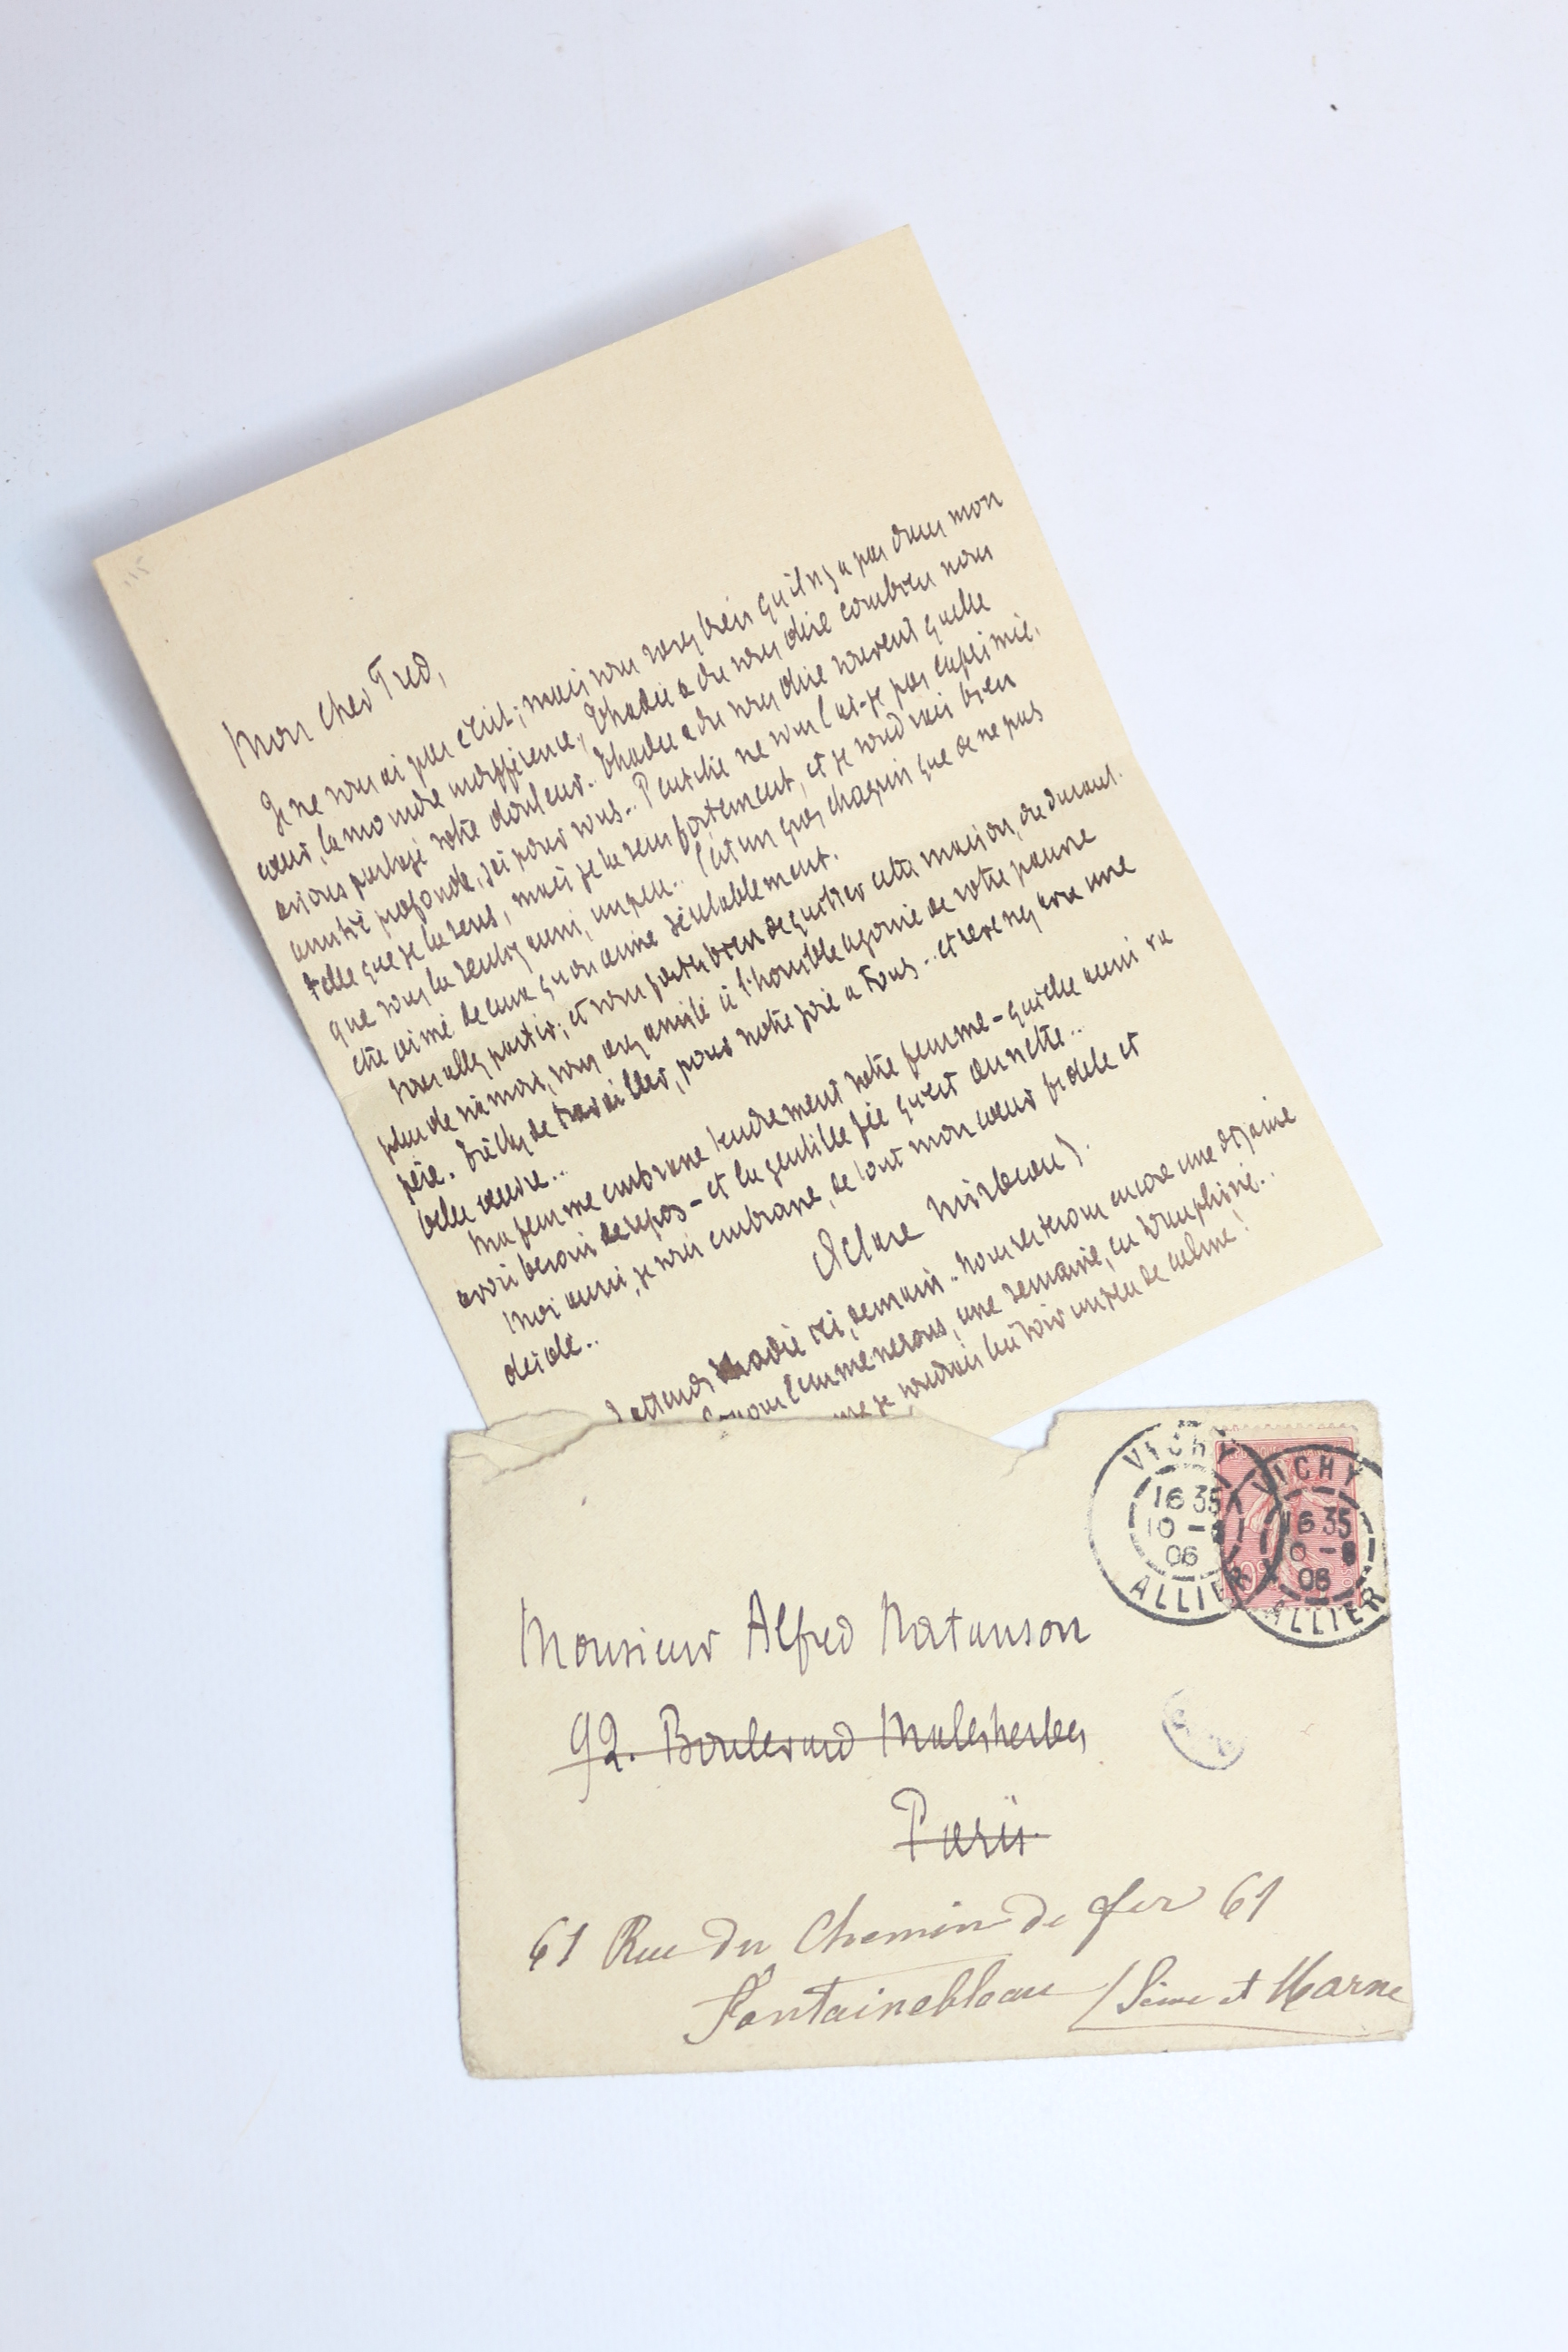 Mon cher Fred,
Je ne vous ai pas écrit ; mais vous savez bien qu'il n'y a pas dans mon
cœur, la moindre indifférence. Thadée a du vous dire combien nous
avions partagé votre douleur. Thadée a du vous dire souvent quelle
amitié profonde, j'ai pour vous.. Peut-être ne vous l'ai-je pas exprimée,
telle que je la sens, mais je la sens fortement, et je voudrais bien
que vous la sentiez aussi, un peu.. C'est un gros chagrin que de ne pas
être aimé de ceux qu'on aime véritablement.
Vous allez partir ; et vous faites bien de quitter cette maison, où durant
plus de six mois, vous avez assisté à l'horrible agonie de votre pauvre
père. Tâchez de travailler, pour notre joie à tous.. et revenez avec une
belle œuvre..
Ma femme embrasse tendrement votre femme - qui elle aussi va
avoir besoin de repos - et la gentille fée qu'est Annette..
Moi aussi, je vous embrasse, de tout mon cœur fidèle et
désolé..
Octave Mirbeau
J'attends Thadée ici, demain.. Nous resterons encore une dizaine
nous l'emmènerons, une semaine, en Dauphiné..
que je voudrais lui voir un peu de calme !
VICHY
16 35
10 -
06
ALLIER
VICHY
16 35
10 -8
06
ALLIER
Monsieur Alfred Natanson
92. Boulevard Malesherbes
Paris
61 Rue du Chemin de fer 61
Fontainebleau (Seine et Marne